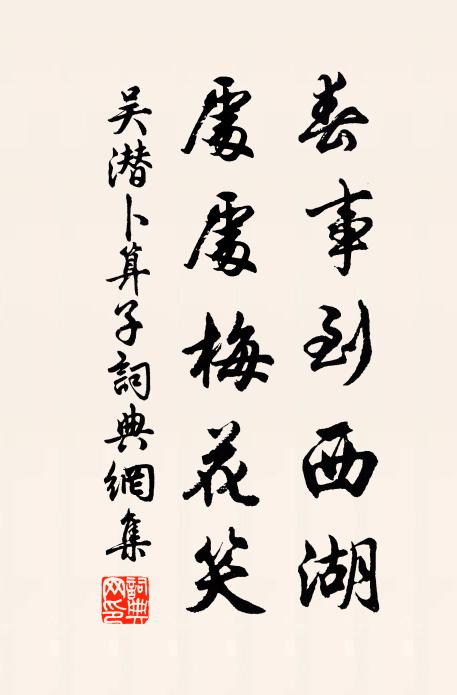 春事到西湖
處處梅花笑
吴潛卜算子詞典網集
詞典網印